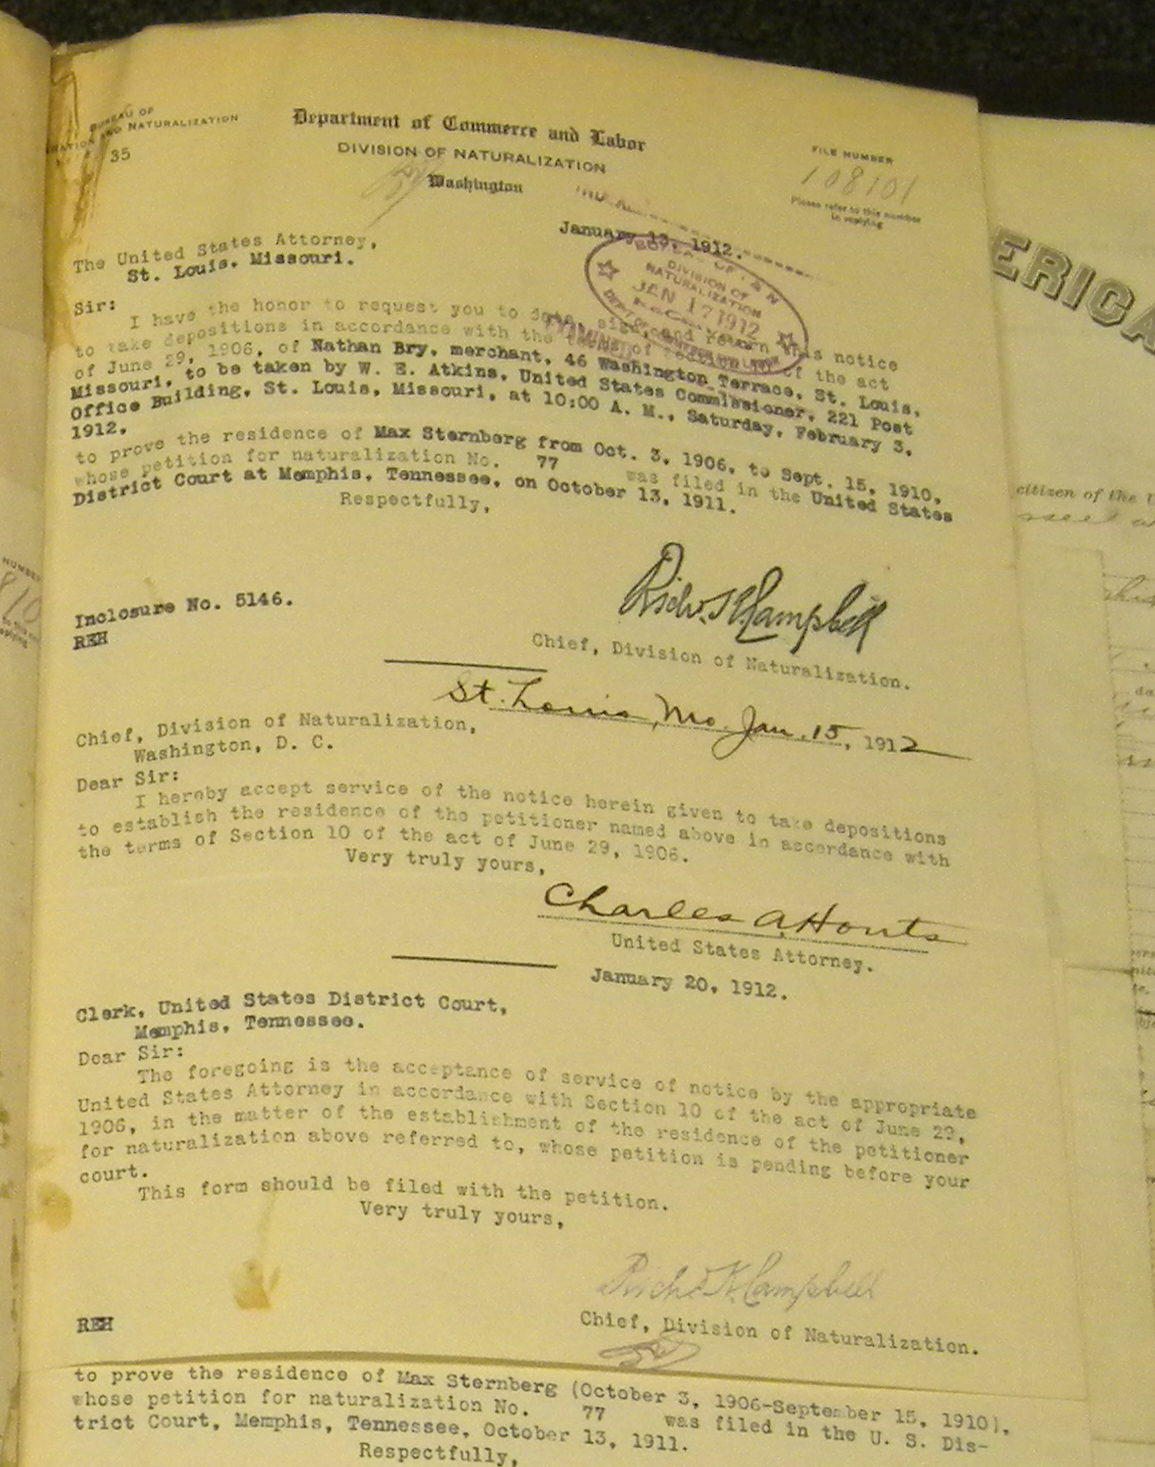 BUREAU OF
AND NATURALIZATION
35
Department of Commerce and Labor
DIVISION OF NATURALIZATION
Washington
FILE NUMBER
108101
Please refer to this number
in replying
January 13, 1912.
DIVISION OF
NATURALIZATION
JAN 17 1912
The United States Attorney,
St. Louis, Missouri.
Sir:
I have the honor to request you to date, sign, and return this notice
to take depositions in accordance with the terms of Section 10 of the act
of June 29, 1906, of Nathan Bry, merchant, 46 Washington Terrace, St. Louis,
Missouri, to be taken by W. E. Atkins, United States Commissioner, 221 Post
Office Building, St. Louis, Missouri, at 10:00 A. M., Saturday, February 3,
1912,
to prove the residence of Max Sternberg from Oct. 3, 1906, to Sept. 15, 1910,
whose petition for naturalization No. 77 was filed in the United States
District Court at Memphis, Tennessee, on October 13, 1911.
Respectfully,
Richd. K. Campbell
Inclosure No. 5146.
REH
Chief, Division of Naturalization.
St. Louis, Mo. Jan. 15, 1912
Chief, Division of Naturalization,
Washington, D. C.
Dear Sir:
I hereby accept service of the notice herein given to take depositions
to establish the residence of the petitioner named above in accordance with
the terms of Section 10 of the act of June 29, 1906.
Very truly yours,
Charles A. Houts
United States Attorney.
January 20, 1912.
Clerk, United States District Court,
Memphis, Tennessee.
Dear Sir:
The foregoing is the acceptance of service of notice by the appropriate
United States Attorney in accordance with Section 10 of the act of June 29,
1906, in the matter of the establishment of the residence of the petitioner
for naturalization above referred to, whose petition is pending before your
court.
This form should be filed with the petition.
Very truly yours,
Richd K. Campbell
REH
Chief, Division of Naturalization.
to prove the residence of Max Sternberg (October 3, 1906-September 15, 1910),
whose petition for naturalization No. 77 was filed in the U. S. Dis-
trict Court, Memphis, Tennessee, October 13, 1911.
Respectfully,
ERICA
citizen of the
NUMBER